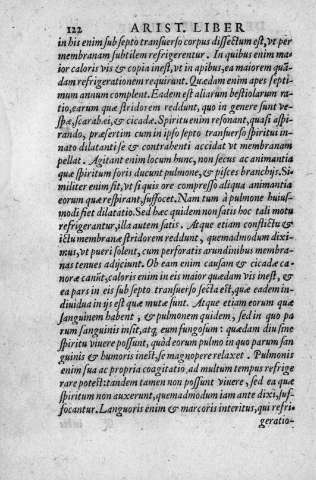 122 ARIST. LIBER
in his enim sub septo transuerso corpus dissectum est, vt per
membranam subtilem refrigerentur. In quibus enim ma
ior caloris vis & copia inest, vt in apibus, ea maiorem quã
dam refrigerationem requirunt. Quædam enim apes septi-
mum annum complent. Eadem est aliarum bestiolarum ra-
tio, earum quæ stridorem reddunt, quo in genere sunt ve-
spæ, scarabæi, & cicadæ. Spiritu enim resonant, quasi aspi-
rando, præsertim cum in ipso septo transuerso spiritui in-
nato dilatanti se & contrahenti accidat vt membranam
pellat. Agitant enim locum hunc, non secus ac animantia
quæ spiritum foris ducunt pulmone, & pisces branchijs. Si-
militer enim fit, vt si quis ore compresso aliqua animantia
eorum quæ respirant, suffocet. Nam tum à pulmone huius-
modi fiet dilatatio. Sed hæc quidem non satis hoc tali motu
refrigerantur, illa autem satis. Atque etiam conflictu &
ictu membranæ stridorem reddunt, quemadmodum dixi-
mus, vt pueri solent, cum perforatis arundinibus membra-
nas tenues adijciunt. Ob eam enim causam & cicadæ ca-
noræ canũt, caloris enim in eis maior quædam vis inest, &
ea pars in eis sub septo transuerso secta est, quæ eadem in-
diuidua in ijs est quæ mutæ sunt. Atque etiam eorum quæ
sanguinem habent, & pulmonem quidem, sed in quo pa
rum sanguinis insit, atq; eum fungosum: quædam diu sine
spiritu viuere possunt, quòd eorum pulmo in quo parum san
guinis & humoris inest, se magnopere relaxet. Pulmonis
enim sua ac propria coagitatio, ad multum tempus refrige
rare potest: tandem tamen non possunt viuere, sed ea quæ
spiritum non auxerunt, quemadmodum iam ante dixi, suf-
focantur. Languoris enim & marcoris interitus, qui refri-
geratio-